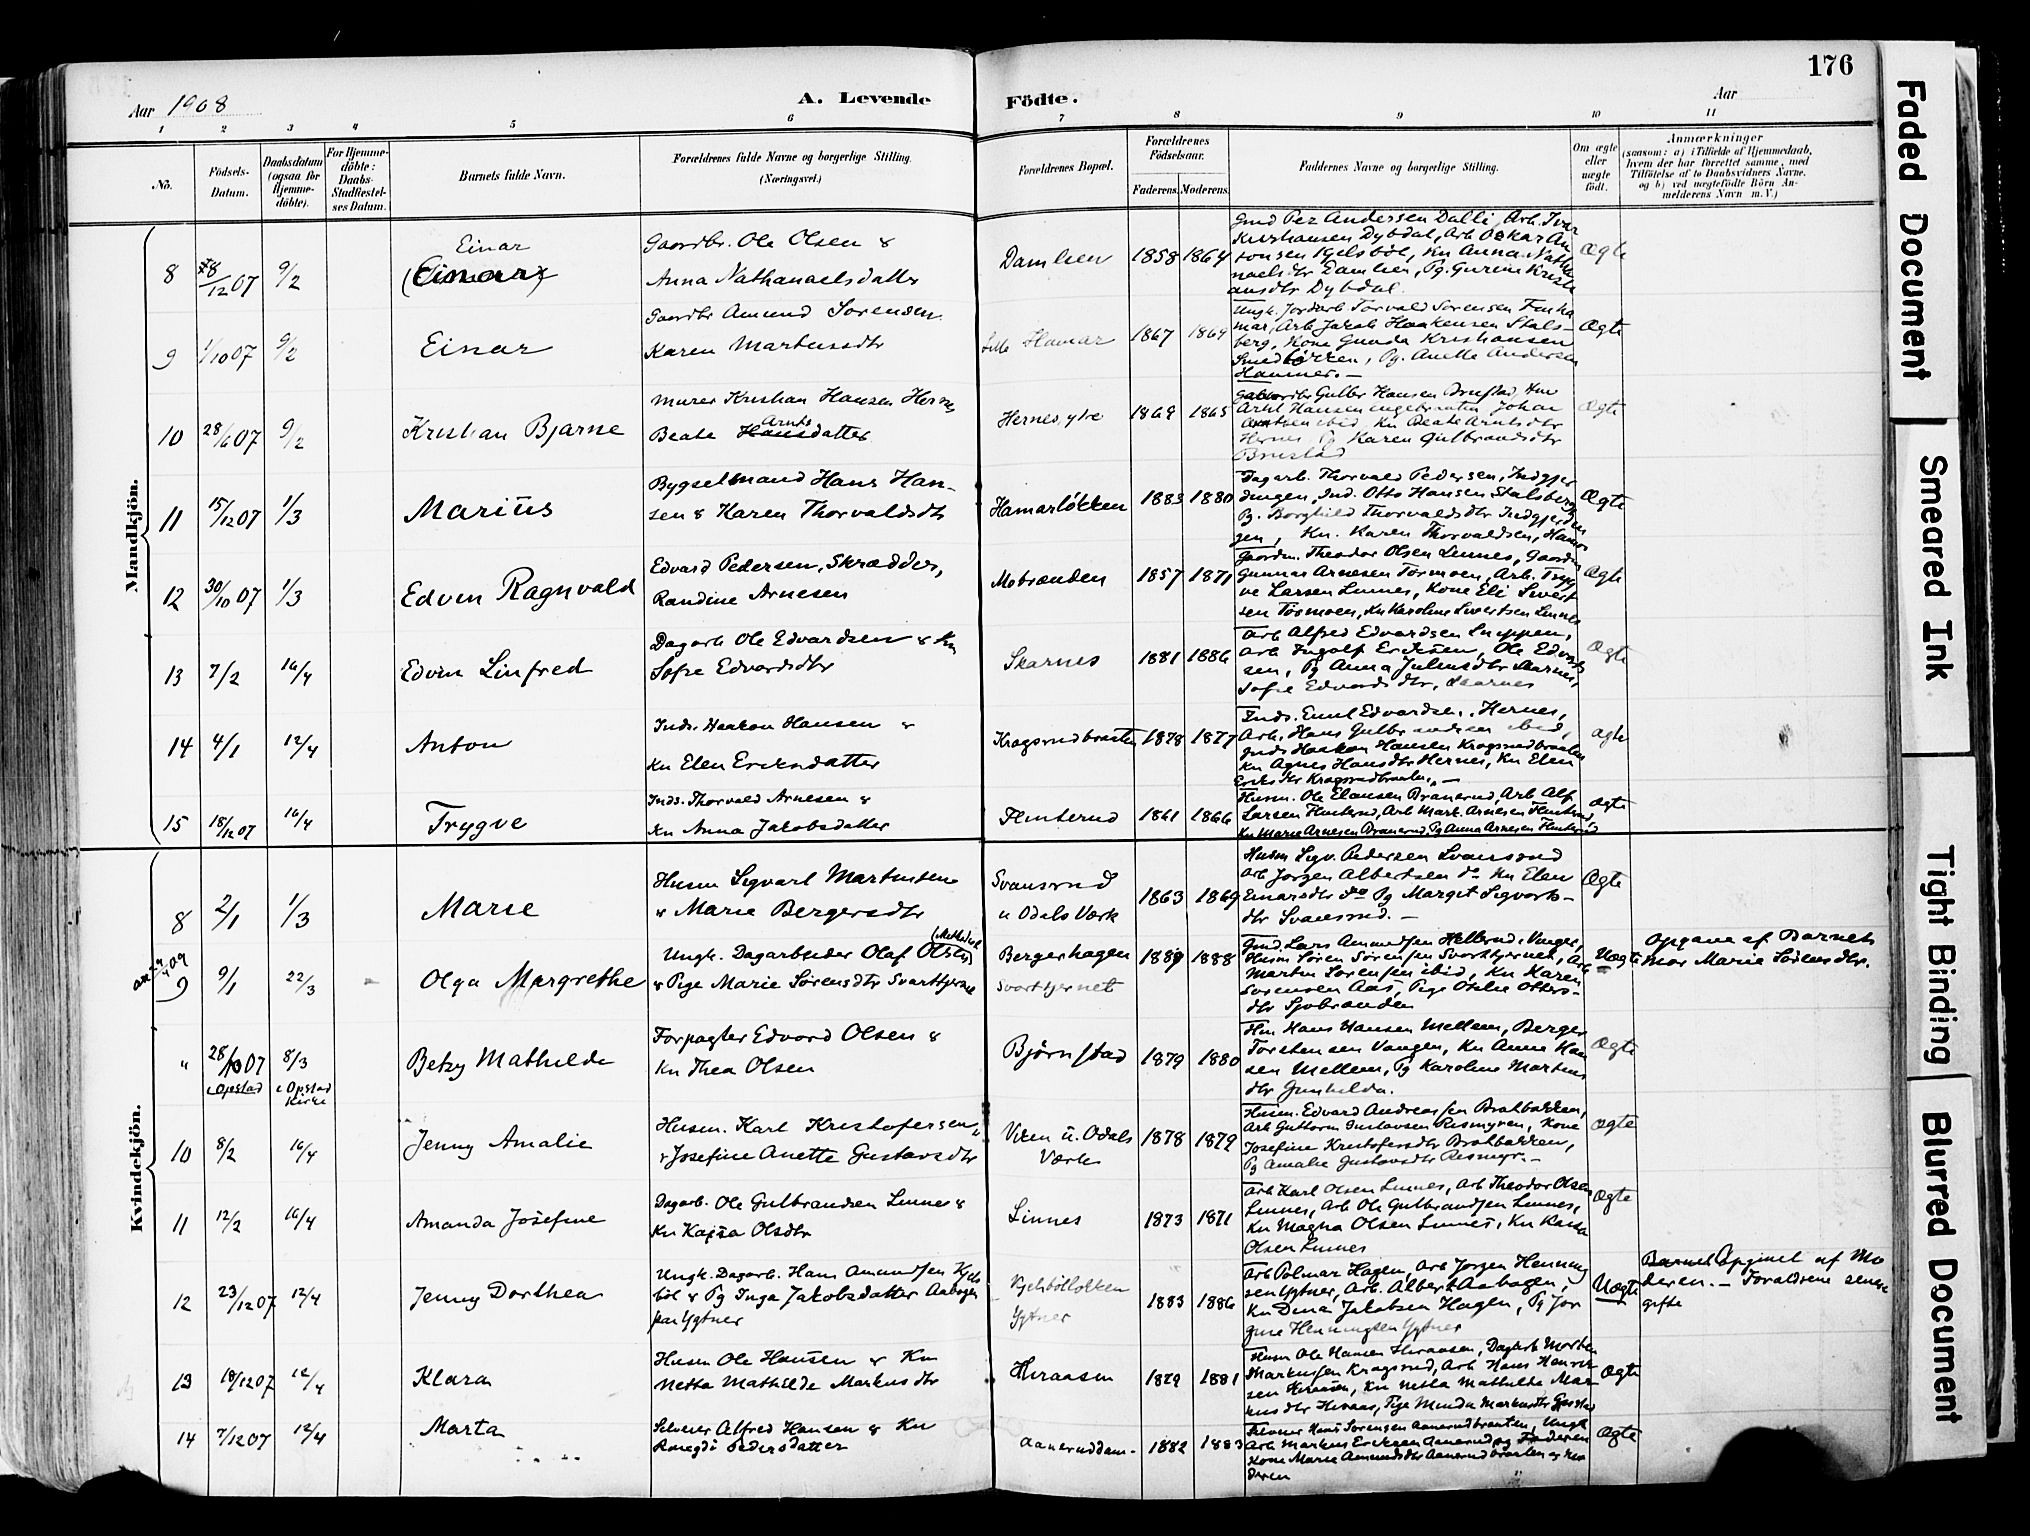 176
Aar 1908
A. Levende Födte.
Aar
1 2 3 4 5 6 7 8 9 10 11
No.
Födsels-Datum.
Daabsdatum (ogsaa for Hjemme-döbte).
For Hjemme-döbte: Daabs-Stadfæstel-ses Datum.
Barnets fulde Navn.
Forældrenes fulde Navne og borgerlige Stilling.
(Næringsvei.)
Forældrenes Bopæl.
Forældrenes Födselsaar.
Faderens. Moderens.
Faddernes Navne og borgerlige Stilling.
Om ægte eller uægte födt.
Anmærkninger
(saasom: a) i Tilfælde af Hjemmedaab, hvem der har forrettet samme, med Tilföielse af to Daabsvidners Navne, og b) ved uægtefödte Börn Anmelderens Navn m. V.)
Mandkjön.
8 8/12 07 9/2 Einar
(Einar)
Gaardbr. Ole Olsen &
Anna Nathanaelsdatter
Damlien 1858 1864
Gmd Per Andersen Dalli, Arb. Ivar
Kristiansen Dybdal, Arb Oskar An
tonsen Kjelsböl, Kn Anna Natha
naelsdtr Damlien, Pg. Gurine Kristi
ansdtr Dybdal.
Ægte
9 1/10 07 9/2 Einar
Gaardbr Amund Sorensen
Karen Martinsdtr
Lille Hamar 1867 1869
Ungk. Jordarb Torvald Sorensen Finha
mar, Arb Jakob Haakensen Stals-
berg, Kone Gunda Kristiansen
Pg. Anette Andersen
Hammer.-
Ægte
10 28/6 07 9/2 Kristian Bjarne
Murer Kristian Hansen Hernes
Beate Hansdatter
Arnts
Hernes, ytre 1869 1865
Gulbr Hansen Brustad
Hansen Johan
ibid, Kn Beate Arntsdtr
Hernes Pg Karen Gulbrandsdtr
Brustad
Ægte
11 15/12 07 1/3 Marius
Bygselmand Hans Han-
sen & Karen Thorvaldsdtr
Hamarlökken 1883 1880
Dagarb. Thorvald Pedersen, Indgjer
dingen, Ind. Otto Hansen Stalsberg
Pg. Borghild Thorvaldsdtr Indgjerdin
gen, Kn. Karen Thorvaldsen, Hamar
Ægte
12 30/10 07 1/3 Edvin Ragnvald
Edvard Pedersen, Skrædder,
Randine Arnesen
Mobrænden 1857 1871
Gaardm. Theodor Olsen Linnes, Gaardm
Gunnar Arnesen Tormoen, Arb. Tryg
ve Larsen Linnes, Kone Eli Sivert
sen Tormoen, Kn Karoline Sivertsen Linnes
Ægte
13 7/2 16/4 Edvin Linfred
Dagarb Ole Edvardsen & Kn
Sofie Edvardsdtr
Skarnes 1881 1886
Arb Alfred Edvardsen Snippen,
Arb Ingolf Eriksen, Ole Edvard
sen, Pg Anna Juliusdtr Skarnes,
Sofie Edvardsdtr, Skarnes
Ægte
14 4/1 12/4 Anton
Inds. Haakon Hansen &
Kn Elen Eriksdatter
Kragsrudbraaten 1878 1877
Inds. Emil Edvardsen, Hernes,
Arb. Hans Gulbrandsen ibid,
Inds Haakon Hansen Kragsrudbraaten
Kn Agnes Hansdtr Hernes, Kn Elen
Eriksdtr Kragsrudbraaten.-
ægte
15 18/12 07 16/4 Trygve
Inds. Thorvald Arnesen &
Kn Anna Jakobsdatter
Flenterud 1861 1866
Husm. Ole Elansen Branerud, Arb Alf
Larsen Flenterud, Arb Mark. Arnesen Flenterud,
Kn Marie Arnesen Branerud Pg Anna Arnesen Flenterud
ægte
Kvindekjön.
8 2/1 1/3 Marie
Husm Sigvart Martinsen
& Marie Bergersdtr
Svansrud
u Odals Værk 1863 1869
Husm Sigv. Pedersen Svansrud
Arb Jörgen Albertsen do Kn Elen
Einarsdtr do Pg Margit Sigvarts-
dtr Svansrud.-
Ægte
9 9/1 22/3 Olga Margrethe
Ungk. Dagarbeider Olaf Olsen
& Pige Marie Sörensdtr Svarttjernet
Bergerhagen
Svarttjernet 1889 1888
Gmd. Lars Amundsen Hellerud, Vinger,
Husm Sören Sörensen Svarttjernet, Arb
Martin Sörensen ibid, Kn Karen
Sorensen Aas, Pige Otilie Otters-
dtr Sjobrænden
Uægte
Opgave af Barnets
Mor Marie Sörensdtr.
" 28/10 07 8/3 Betzy Mathilde
i Opstad i Opstad Kirke
Forpagter Edvard Olsen &
Kn Thea Olsen
Björnstad 1879 1880
Hm Hans Hansen Mellem, Berger
Torstensen Vangen, Kn Anne Han
sen Mellem, Pg Karoline Martins
dtr Gunhilda.
Ægte
10 8/2 16/4 Jenny Amalie
Husm. Karl Kristofersen
& Josefine Anette Gustavsdtr
Viken u. Odals
Værk 1878 1879
Husm. Edvard Andreassen Bratbakken,
Arb Guttorm Gustavsen Rismyren, Kone
Josefine Kristofersdtr Bratbakken,
Pg Amalie Gustavsdtr Rismyr.-
ægte
11 12/2 16/4 Amanda Josefine
Dagarb. Ole Gulbrandsen Linnes &
Kn Kajsa Olsdtr
Linnes 1873 1871
Arb Karl Olsen Linnes, Arb Theodor Olsen
Linnes, Arb Ole Gulbrandsen Linnes,
Kn Magna Olsen Linnes, Kn Kaisa
Olsen Linnes
Ægte
12 23/12 07 12/4 Jenny Dorthea
Ungk. Dagarb. Hans Amundsen Kjels
böl & Pg Inga Jakobsdatter Aabogen
paa Ygtner
Kjelsböllökken
Ygtner 1883 1886
Arb Polmar Hagen, Arb Jörgen Henning
sen Ygtner, Arb. Albert Aabogen,
Kn Dina Jakobsen Hagen, Pg Jör
gine Henningsen Ygtner
Uægte
Barnet Opgivet af Mo
deren.- Forældrene senere
gifte
13 18/12 07 12/4 Klara
Husm Ole Hansen & Kn
Netta Mathilde Markusdtr
Heraasen 1879 1881
Husm Ole Hansen Heraasen, Dagarb Morten
Markussen Kragsrud, Arb Hans Henrik
sen Heraasen, Kn Netta Mathilde Mar-
kusdtr Heraas, Pige Minda Markusdtr
Ægte
14 7/12 07 12/4 Marta
Selveier Alfred Hansen & Kn
Ronegdi Pedersdatter
Aaneruddam- 1882 1883
Hans Sörensen Aanerudbraaten, Ungk
Arb Markus Eriksen Aanerud og Faderen
Kone Marie Amundsdtr Aanerudbraaten og Mo
deren
Ægte
Faded Document
Smeared Ink
Tight Binding
Blurred Document